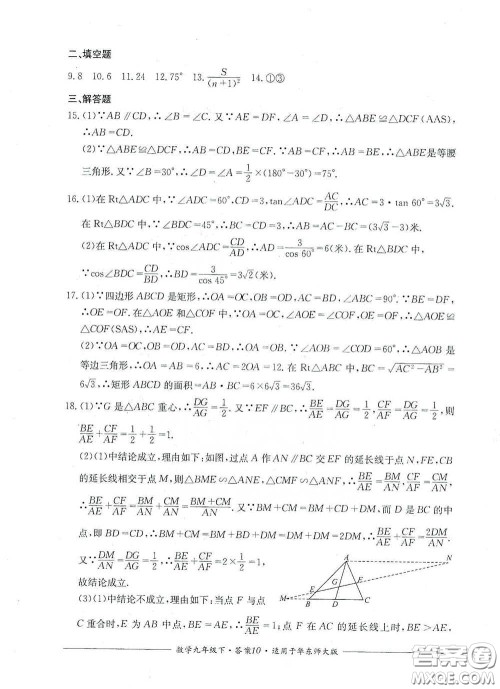 二、填空题
9.8 10.6 11.24 12.75° 13.S/(n+1)² 14.①③
三、解答题
15.(1)∵AB∥CD,∴∠B=∠C.又∵AE=DF,∠A=∠D,∴△ABE≌△DCF(AAS),
∴AB=CD.
(2)∵△ABE≌△DCF,∴AB=CD,BE=CF.∵AB=CF,∴CD=CF,∴△CDF是等腰
三角形.又∵∠B=30°,∴∠C=30°,∴∠D=1/2×(180°-30°)=75°.
16.(1)在Rt△ADC中,∵∠ADC=60°,CD=3,tan∠ADC=AC/DC,∴AC=3·tan 60°=3√3.
在Rt△BDC中,∵∠BDC=45°,∴BC=DC=3,∴AB=AC-BC=(3√3-3)(米).
(2)在Rt△ADC中,∵cos∠ADC=CD/AD,∴AD=3/cos 60°=6(米).在Rt△BDC中,
∵cos∠BDC=CD/BD,∴BD=3/cos45°=3√2(米).
17.(1)∵四边形ABCD是矩形,∴OA=OC,OB=OD,AC=BD,∠ABC=90°.∵BE=DF,
∴OE=OF.在△AOE和△COF中,∵OA=OC,∠AOE=∠COF,OE=OF,∴△AOE≌
△COF(SAS),∴AE=CF.
(2)∵OA=OC,OB=OD,AC=BD,∴OA=OB.∵∠AOB=∠COD=60°,∴△AOB是
等边三角形,∴OA=AB=6,∴AC=2OA=12.在Rt△ABC中,BC=√AC²-AB²=
6√3,∴矩形ABCD的面积=AB·BC=6×6√3=36√3.
18.(1)∵G是△ABC重心,∴DG/AG=1/2.又∵EF∥BC,∴BE/AE=DG/AG=1/2,CF/AF=DG/AG=1/2,则
BE/AE+CF/AF=1/2+1/2=1.
(2)(1)中结论成立,理由如下:如图,过点A作AN∥BC交EF的延长线于点N,FE,CB
的延长线相交于点M,则△BME∽△ANE,△CMF∽△ANF,∴BE/AE=BM/AN,CF/AF=CM/AN,
∴BE/AE+CF/AF=BM/AN+CM/AN=BM+CM/AN.又∵BM+CM=BM+CD+DM,而D是BC的中
点,即BD=CD,∴BM+CM=BM+BD+DM=DM+DM=2DM,∴BE/AE+CF/AF=2DM/AN.
又∵DM/AN=DG/AG=1/2,∴BE/AE+CF/AF=2×1/2=1,
故结论成立.
(3)(1)中结论不成立,理由如下:当点F与点
C重合时,E为AB中点,BE=AE;点F在AC的延长线上时,BE>AE,
A N E G F M B D C
数学九年级下·答案10·适用于华东师大版